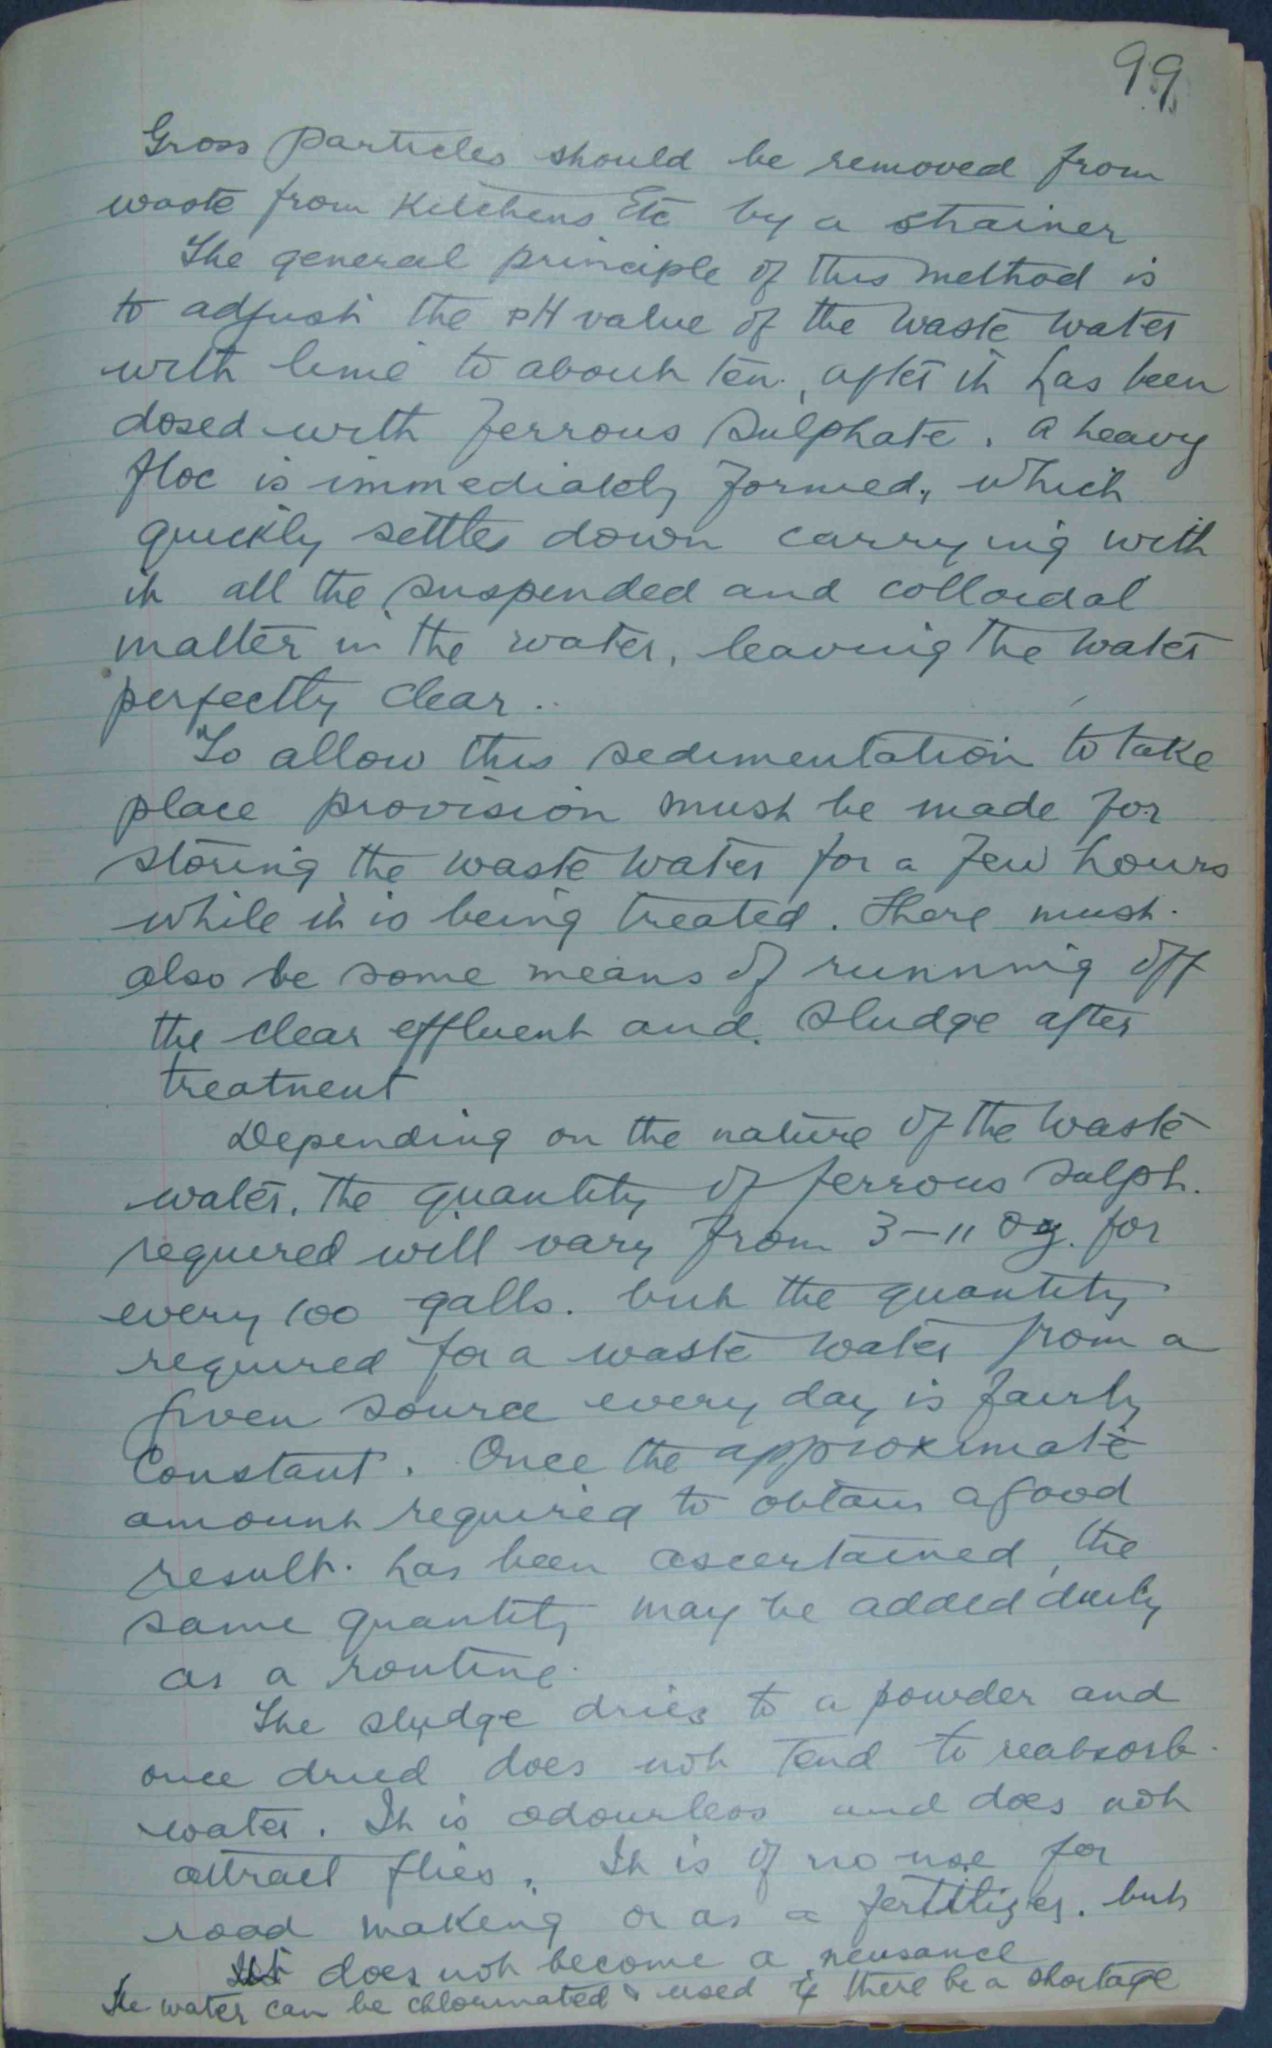 99
Gross particles should be removed from
waste from Kitchens Etc by a strainer
The general principle of this method is
to adjust the pH value of the waste water
with lime to about ten, after it has been
dosed with ferrous sulphate. A heavy
floc is immediately formed, which
quickly settles down carrying with
it all the suspended and colloidal
matter in the water, leaving the water
perfectly clear.
To allow this sedimentation to take
place provision must be made for
storing the waste water for a few hours
while it is being treated. There must
also be some means of running off
the clear effluent and sludge after
treatment
Depending on the nature of the waste
water, the quantity of ferrous sulph.
required will vary from 3-11 oz. for
every 100 galls. but the quantity
required for a waste water from a
given source every day is fairly
constant. Once the approximate
amount required to obtain a good
result has been ascertained, the
same quantity may be added daily
as a routine.
The sludge dries to a powder and
once dried does not tend to reabsorb
water. It is odourless and does not
attract flies. It is of no use for
road making or as a fertilizer. but
it does not become a neusance
The water can be chlorinated & used if there be a shortage